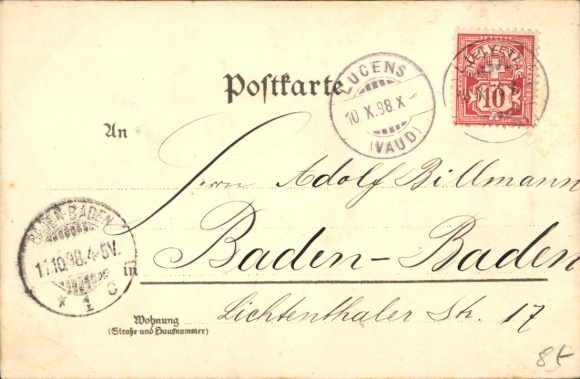 HELVETIA
10
LUCENS
10.X.98.X-
(VAUD)
Postkarte
An
Herrn Adolf Billmann
BADEN-BADEN
11.10.98.4-5V.
* 1 c
in Baden-Baden
Lichtenthaler Str. 17
Wohnung
(Straße und Hausnummer)
8t